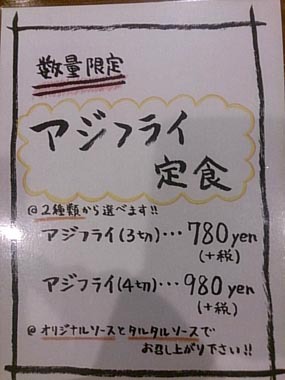 数量限定
アジフライ
定食
@2種類から選べます!!
アジフライ(3切)･･･780yen
(+税)
アジフライ(4切)･･･980yen
(+税)
@オリジナルソースとタルタルソースで
お召し上がり下さい!!